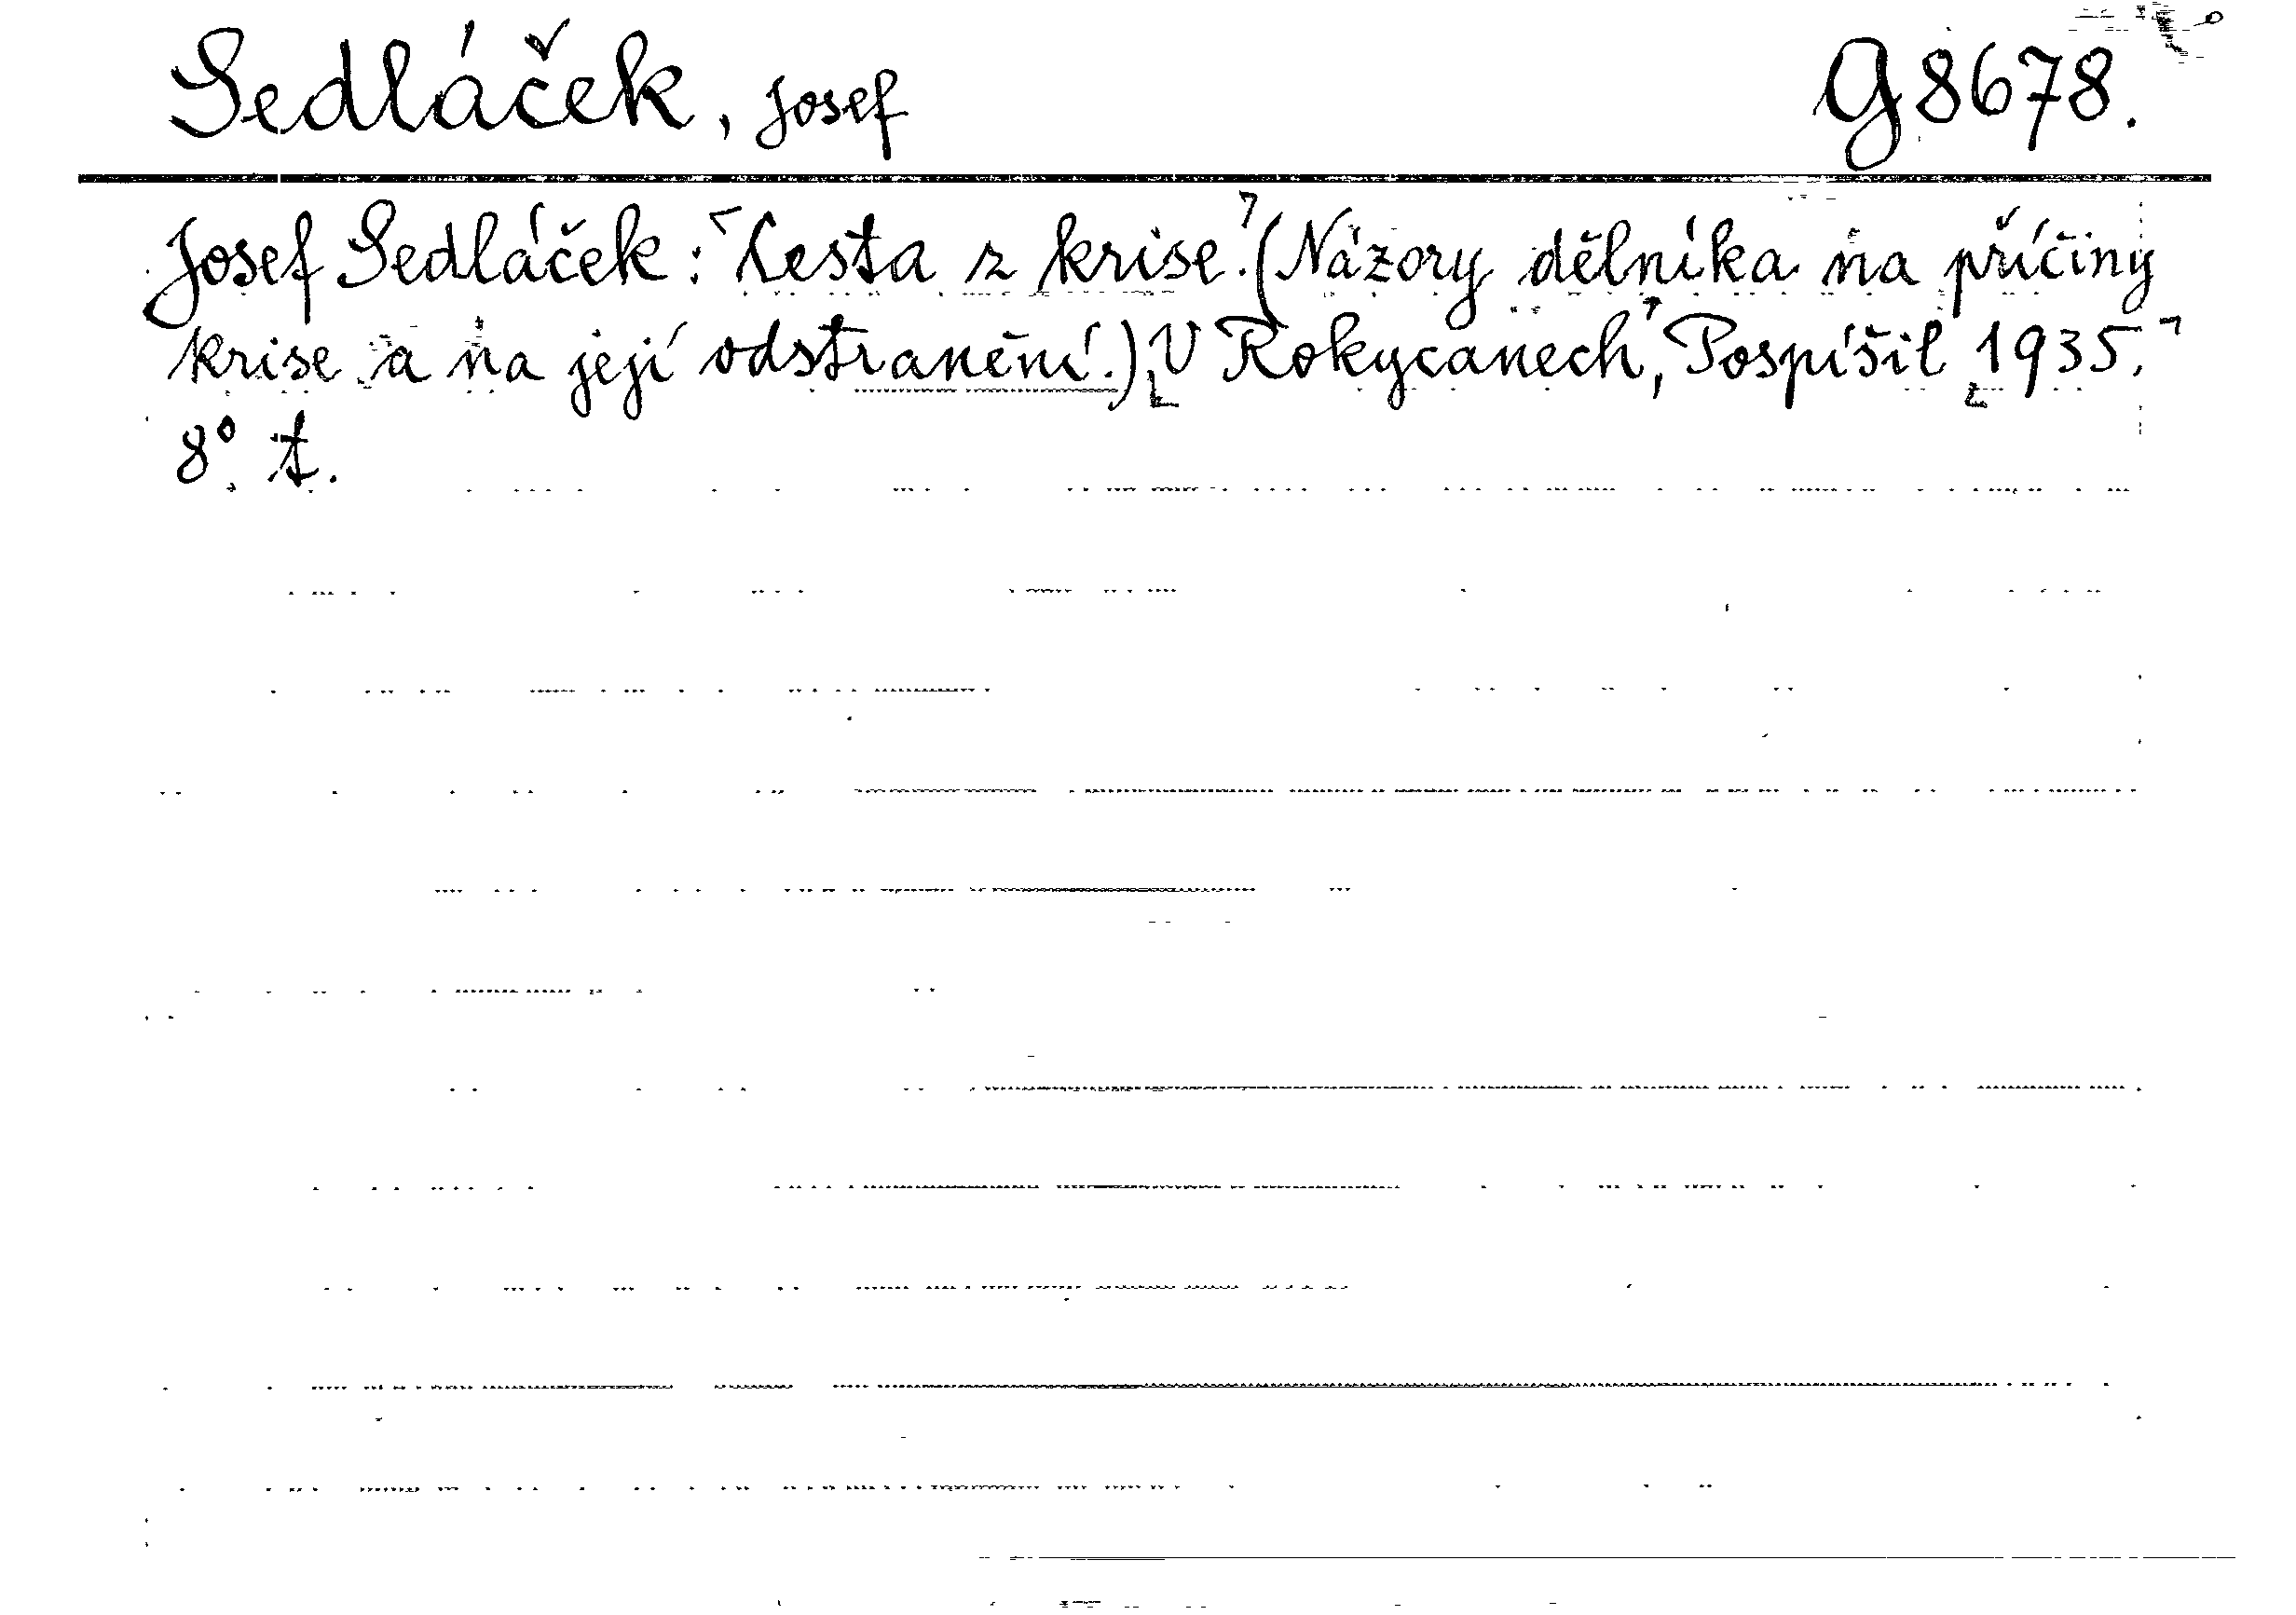 Sedláček, Josef G 8678.
Josef Sedláček: Cesta z krise. (Názory dělníka na příčiny
krise a na její odstranění.) V Rokycanech, Pospíšil 1935.
8° t.